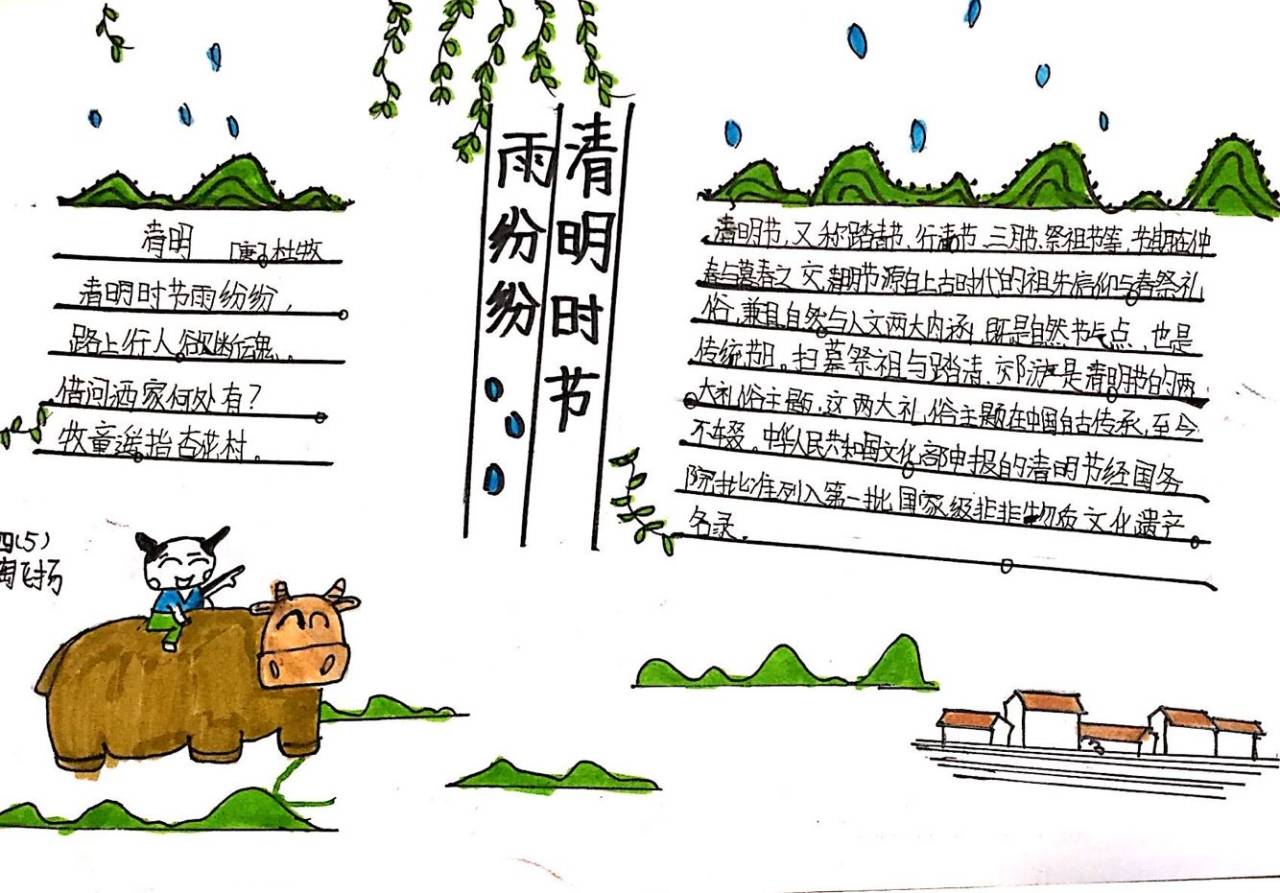 清明 [唐]杜牧
清明时节雨纷纷，
路上行人欲断魂。
借问酒家何处有？
牧童遥指杏花村。
四(5)
陶飞扬
清明时节
雨纷纷
清明节，又称踏青节、行清节、三月节、祭祖节等，节期在仲
春与暮春之交，清明节源自上古时代的祖先信仰与春祭礼
俗，兼具自然与人文两大内涵，既是自然节气点，也是
传统节日。扫墓祭祖与踏青郊游是清明节的两
大礼俗主题，这两大礼俗主题在中国自古传承，至今
不辍。中华人民共和国文化部申报的清明节经国务
院批准列入第一批国家级非非物质文化遗产
名录。